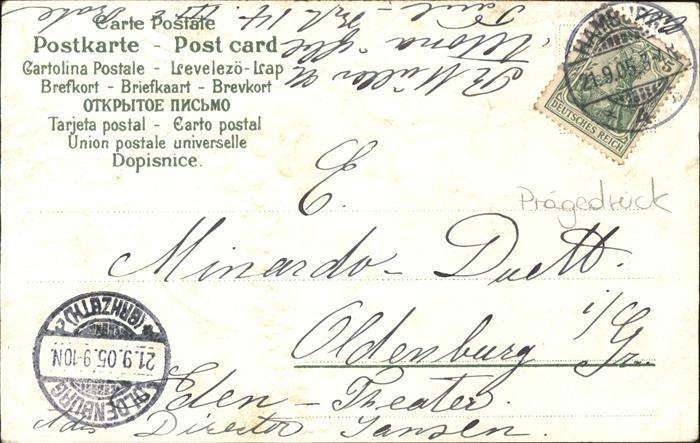 Carte Postale
Postkarte - Post card
Cartolina Postale - Levelező-Lap
Brefkort - Briefkaart - Brevkort
ОТКРЫТОЕ ПИСЬМО
Tarjeta postal - Carto postal
Union postale universelle
Dopisnice.
Altona
HAMBURG
21.9.05
DEUTSCHES REICH
Prägedruck
E.
Minardo - Duett.
Oldenburg i/Gr.
Eden - Theater.
Director Jansen.
OLDENBURG
21.9.05.9-10N.
(GRHZGTH.)